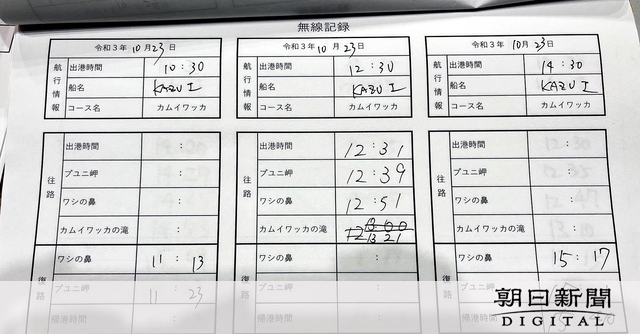 無線記録
令和3年10月23日
航行情報
出港時間 10:30
船名 KAZU I
コース名 カムイワッカ
往路
出港時間 :
プユニ岬 :
ワシの鼻 :
カムイワッカの滝 :
復路
ワシの鼻 11:13
プユニ岬 11:23
帰港時間 :
令和3年10月23日
航行情報
出港時間 12:30
船名 KAZU I
コース名 カムイワッカ
往路
出港時間 12:31
プユニ岬 12:39
ワシの鼻 12:51
カムイワッカの滝 13 21
復路
ワシの鼻 :
プユニ岬 :
帰港時間 :
令和3年10月23日
航行情報
出港時間 14:30
船名 KAZU I
コース名 カムイワッカ
往路
出港時間 :
プユニ岬 :
ワシの鼻 :
カムイワッカの滝 :
復路
ワシの鼻 15:17
プユニ岬
帰港時間
朝日新聞
DIGITAL